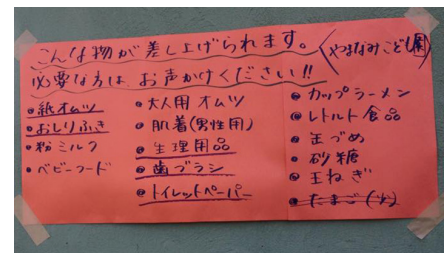 こんな物が差し上げられます。
(やまなみこども園)
必要な方は、お声かけください!!
・紙オムツ
・おしりふき
・粉ミルク
・ベビーフード
・大人用オムツ
・肌着(男性用)
・生理用品
・歯ブラシ
・トイレットペーパー
・カップラーメン
・レトルト食品
・缶づめ
・砂糖
・玉ねぎ
・たまご(少)